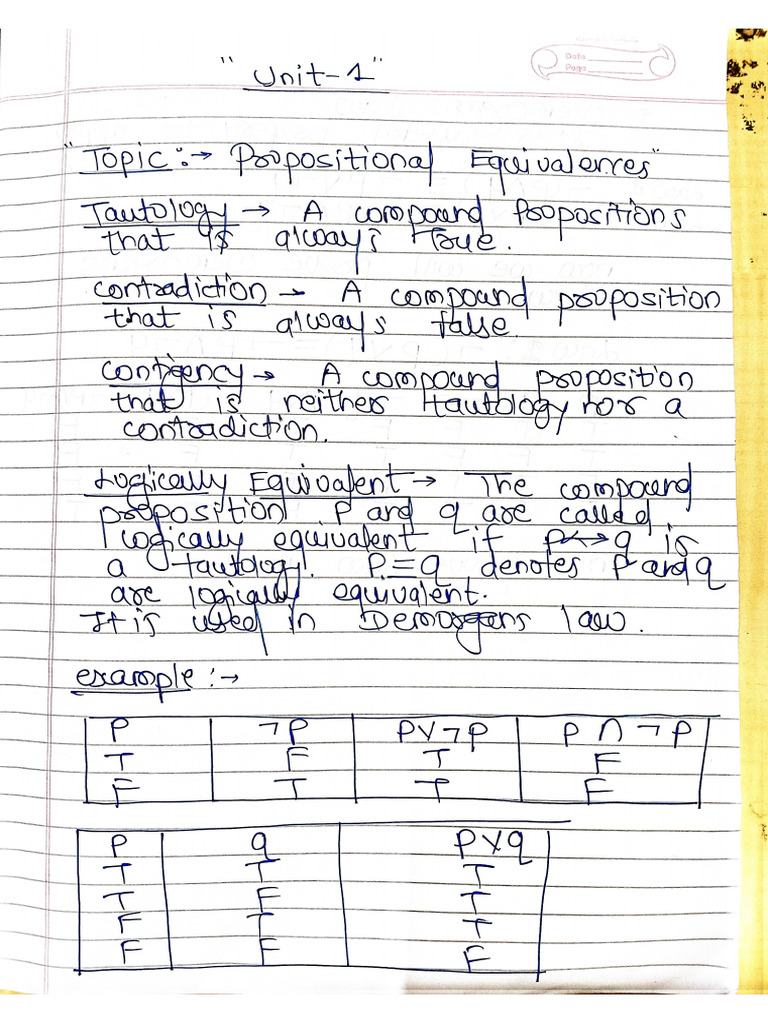 "Unit-1"
Date
Page
"Topic:→ Propositional Equivalences"
Tautology → A compound Propositions
that is always True.
contradiction → A compound proposition
that is always false.
contigency → A compound proposition
that is neither tautology nor a
contradiction.
Logically Equivalent → The compound
proposition P and q are called
logically equivalent if p↔q is
a tautology. P≡q denotes P and q
are logically equivalent.
It is used in Demorgans law.
example:→
P ¬P P∨¬P P∩¬P
T F T F
F T T F
P q P∨q
T T T
T F T
F T T
F F F